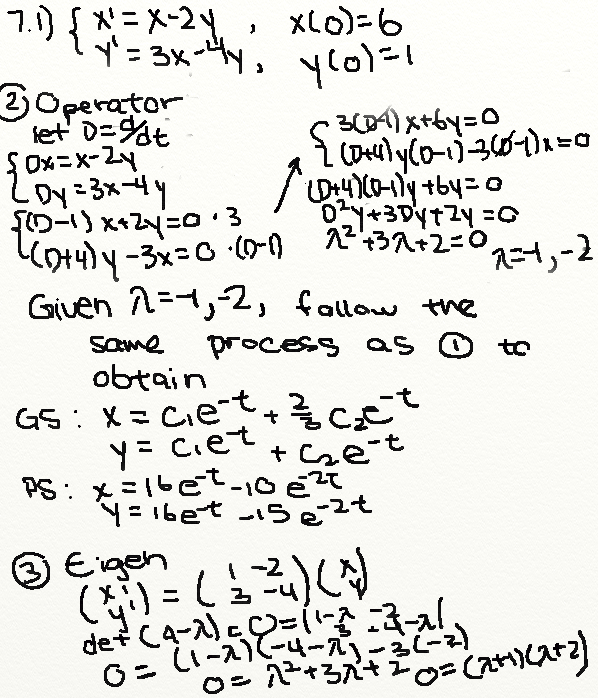 7.1) { x' = x-2y , x(0)=6
y' = 3x-4y, y(0)=1
② Operator
let D=d/dt
{ Dx=x-2y
Dy=3x-4y
{ (D-1)x+2y=0 ·3
(D+4)y-3x=0 ·(D-1)
{ 3(D-1)x+6y=0
(D+4)y(D-1)-3(D-1)x=0
(D+4)(D-1)y+6y=0
D²y+3Dy+2y=0
λ²+3λ+2=0 λ=-1,-2
Given λ=-1,-2, follow the
same process as ① to
obtain
GS: x = c₁e^-t + 2/3 c₂e^-t
y = c₁e^-t + c₂e^-t
PS: x = 16e^-t -10e^-2t
y = 16e^-t -15e^-2t
③ Eigen
(x' y') = (1 -2 3 -4)(x y)
det(A-λ)=0=|1-λ -2 3 -4-λ|
0 = (1-λ)(-4-λ)-3(-2)
0 = λ²+3λ+2 0=(λ+1)(λ+2)